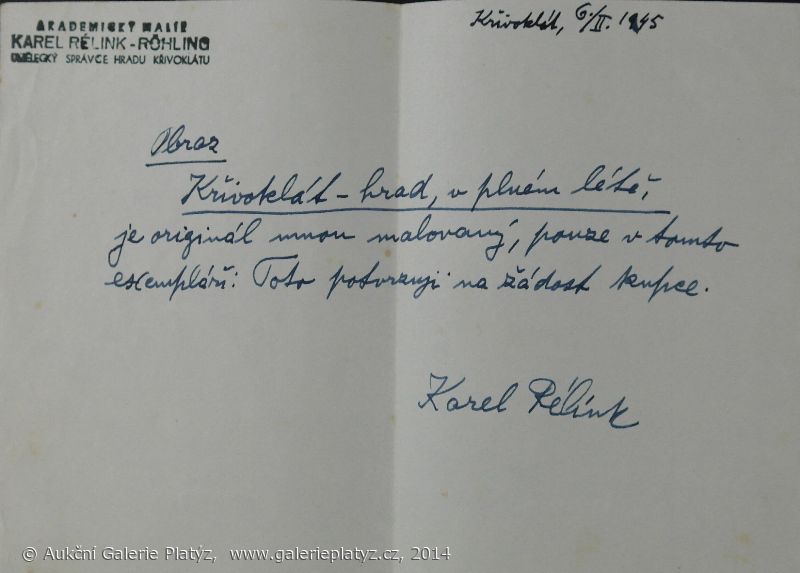 AKADEMICKÝ MALÍŘ
KAREL RÉLINK-RÖHLING
UMĚLECKÝ SPRÁVCE HRADU KŘIVOKLÁTU
Křivoklát, 6./II. 1945
Obraz
Křivoklát - hrad, v plném létě,
je originál mnou malovaný, pouze v tomto
exempláři: Toto potvrzuji na žádost kupce.
Karel Rélink
© Aukční Galerie Platýz, www.galerieplatyz.cz, 2014